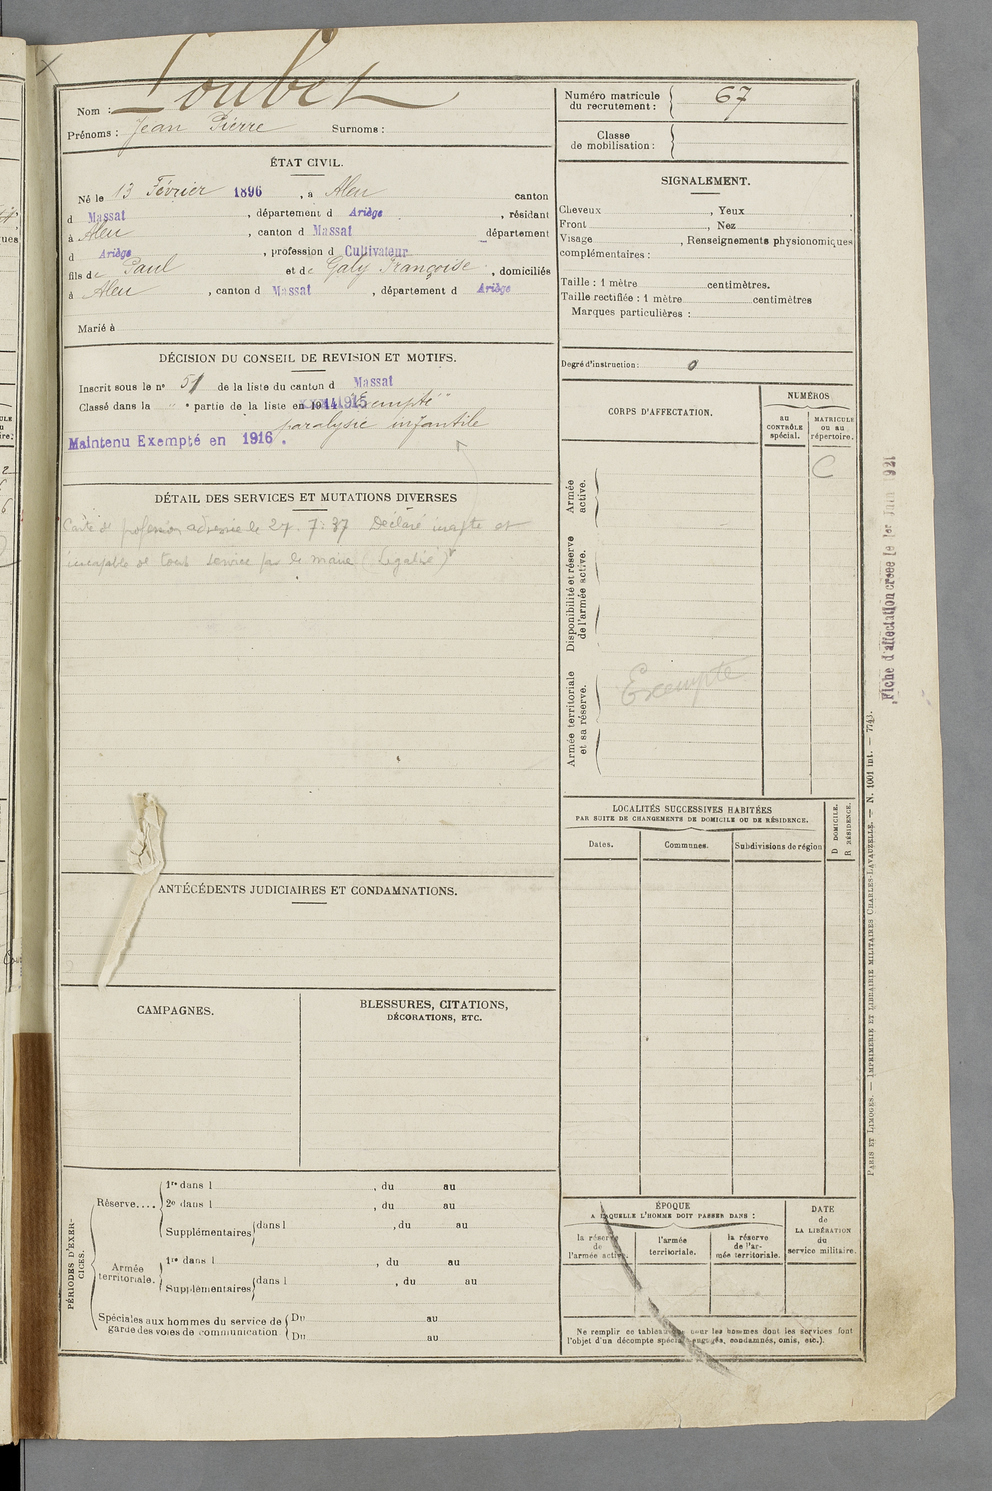 Loubet
Nom :
Prénoms : Jean Pierre Surnoms :
ÉTAT CIVIL.
Né le 13 Février 1896, à Aleu canton
d Massat, département d Ariège, résidant
à Aleu, canton d Massat département
d Ariège, profession d Cultivateur
fils de Paul et de Galy Françoise, domiciliés
à Aleu, canton d Massat, département d Ariège
Marié à
DÉCISION DU CONSEIL DE REVISION ET MOTIFS.
Inscrit sous le n° 51 de la liste du canton d Massat
Classé dans la " • partie de la liste en 1915 Exempté
paralysie infantile
Maintenu Exempté en 1916.
DÉTAIL DES SERVICES ET MUTATIONS DIVERSES
Carte de profession adressée le 27.7.37 Déclaré inapte et
incapable de tout service par le maire (Légalisé)
ANTÉCÉDENTS JUDICIAIRES ET CONDAMNATIONS.
CAMPAGNES.
BLESSURES, CITATIONS,
DÉCORATIONS, ETC.
PÉRIODES D'EXER-
CICES.
Réserve....
1re dans l , du au
2e dans l , du au
Supplémentaires dans l , du au
Armée
territoriale.
1re dans l , du au
Supplémentaires dans l , du au
Spéciales aux hommes du service de
garde des voies de communication
Du au
Du au
Numéro matricule
du recrutement : 67
Classe
de mobilisation :
SIGNALEMENT.
Cheveux , Yeux ,
Front , Nez
Visage , Renseignements physionomiques
complémentaires :
Taille : 1 mètre centimètres.
Taille rectifiée : 1 mètre centimètres
Marques particulières :
Degré d'instruction : 0
CORPS D'AFFECTATION.
NUMÉROS
AU
CONTRÔLE
spécial.
MATRICULE
OU AU
répertoire.
C
Armée
active.
Disponibilité et réserve
de l'armée active.
Armée territoriale
et sa réserve.
Exempté
LOCALITÉS SUCCESSIVES HABITÉES
PAR SUITE DE CHANGEMENTS DE DOMICILE OU DE RÉSIDENCE.
D DOMICILE.
R RÉSIDENCE.
Dates.
Communes.
Subdivisions de région
ÉPOQUE
A LAQUELLE L'HOMME DOIT PASSER DANS :
la réserve
de
l'armée active.
l'armée
territoriale.
la réserve
de l'ar-
mée territoriale.
DATE
de
LA LIBÉRATION
du
service militaire.
Ne remplir ce tableau que pour les hommes dont les services font
l'objet d'un décompte spécial (engagés, condamnés, omis, etc.).
Fiche d'affectation créée le 1er Juin 1921
PARIS ET LIMOGES. — IMPRIMERIE ET LIBRAIRIE MILITAIRES CHARLES-LAVAUZELLE. — N. 1001 int. — 7743.